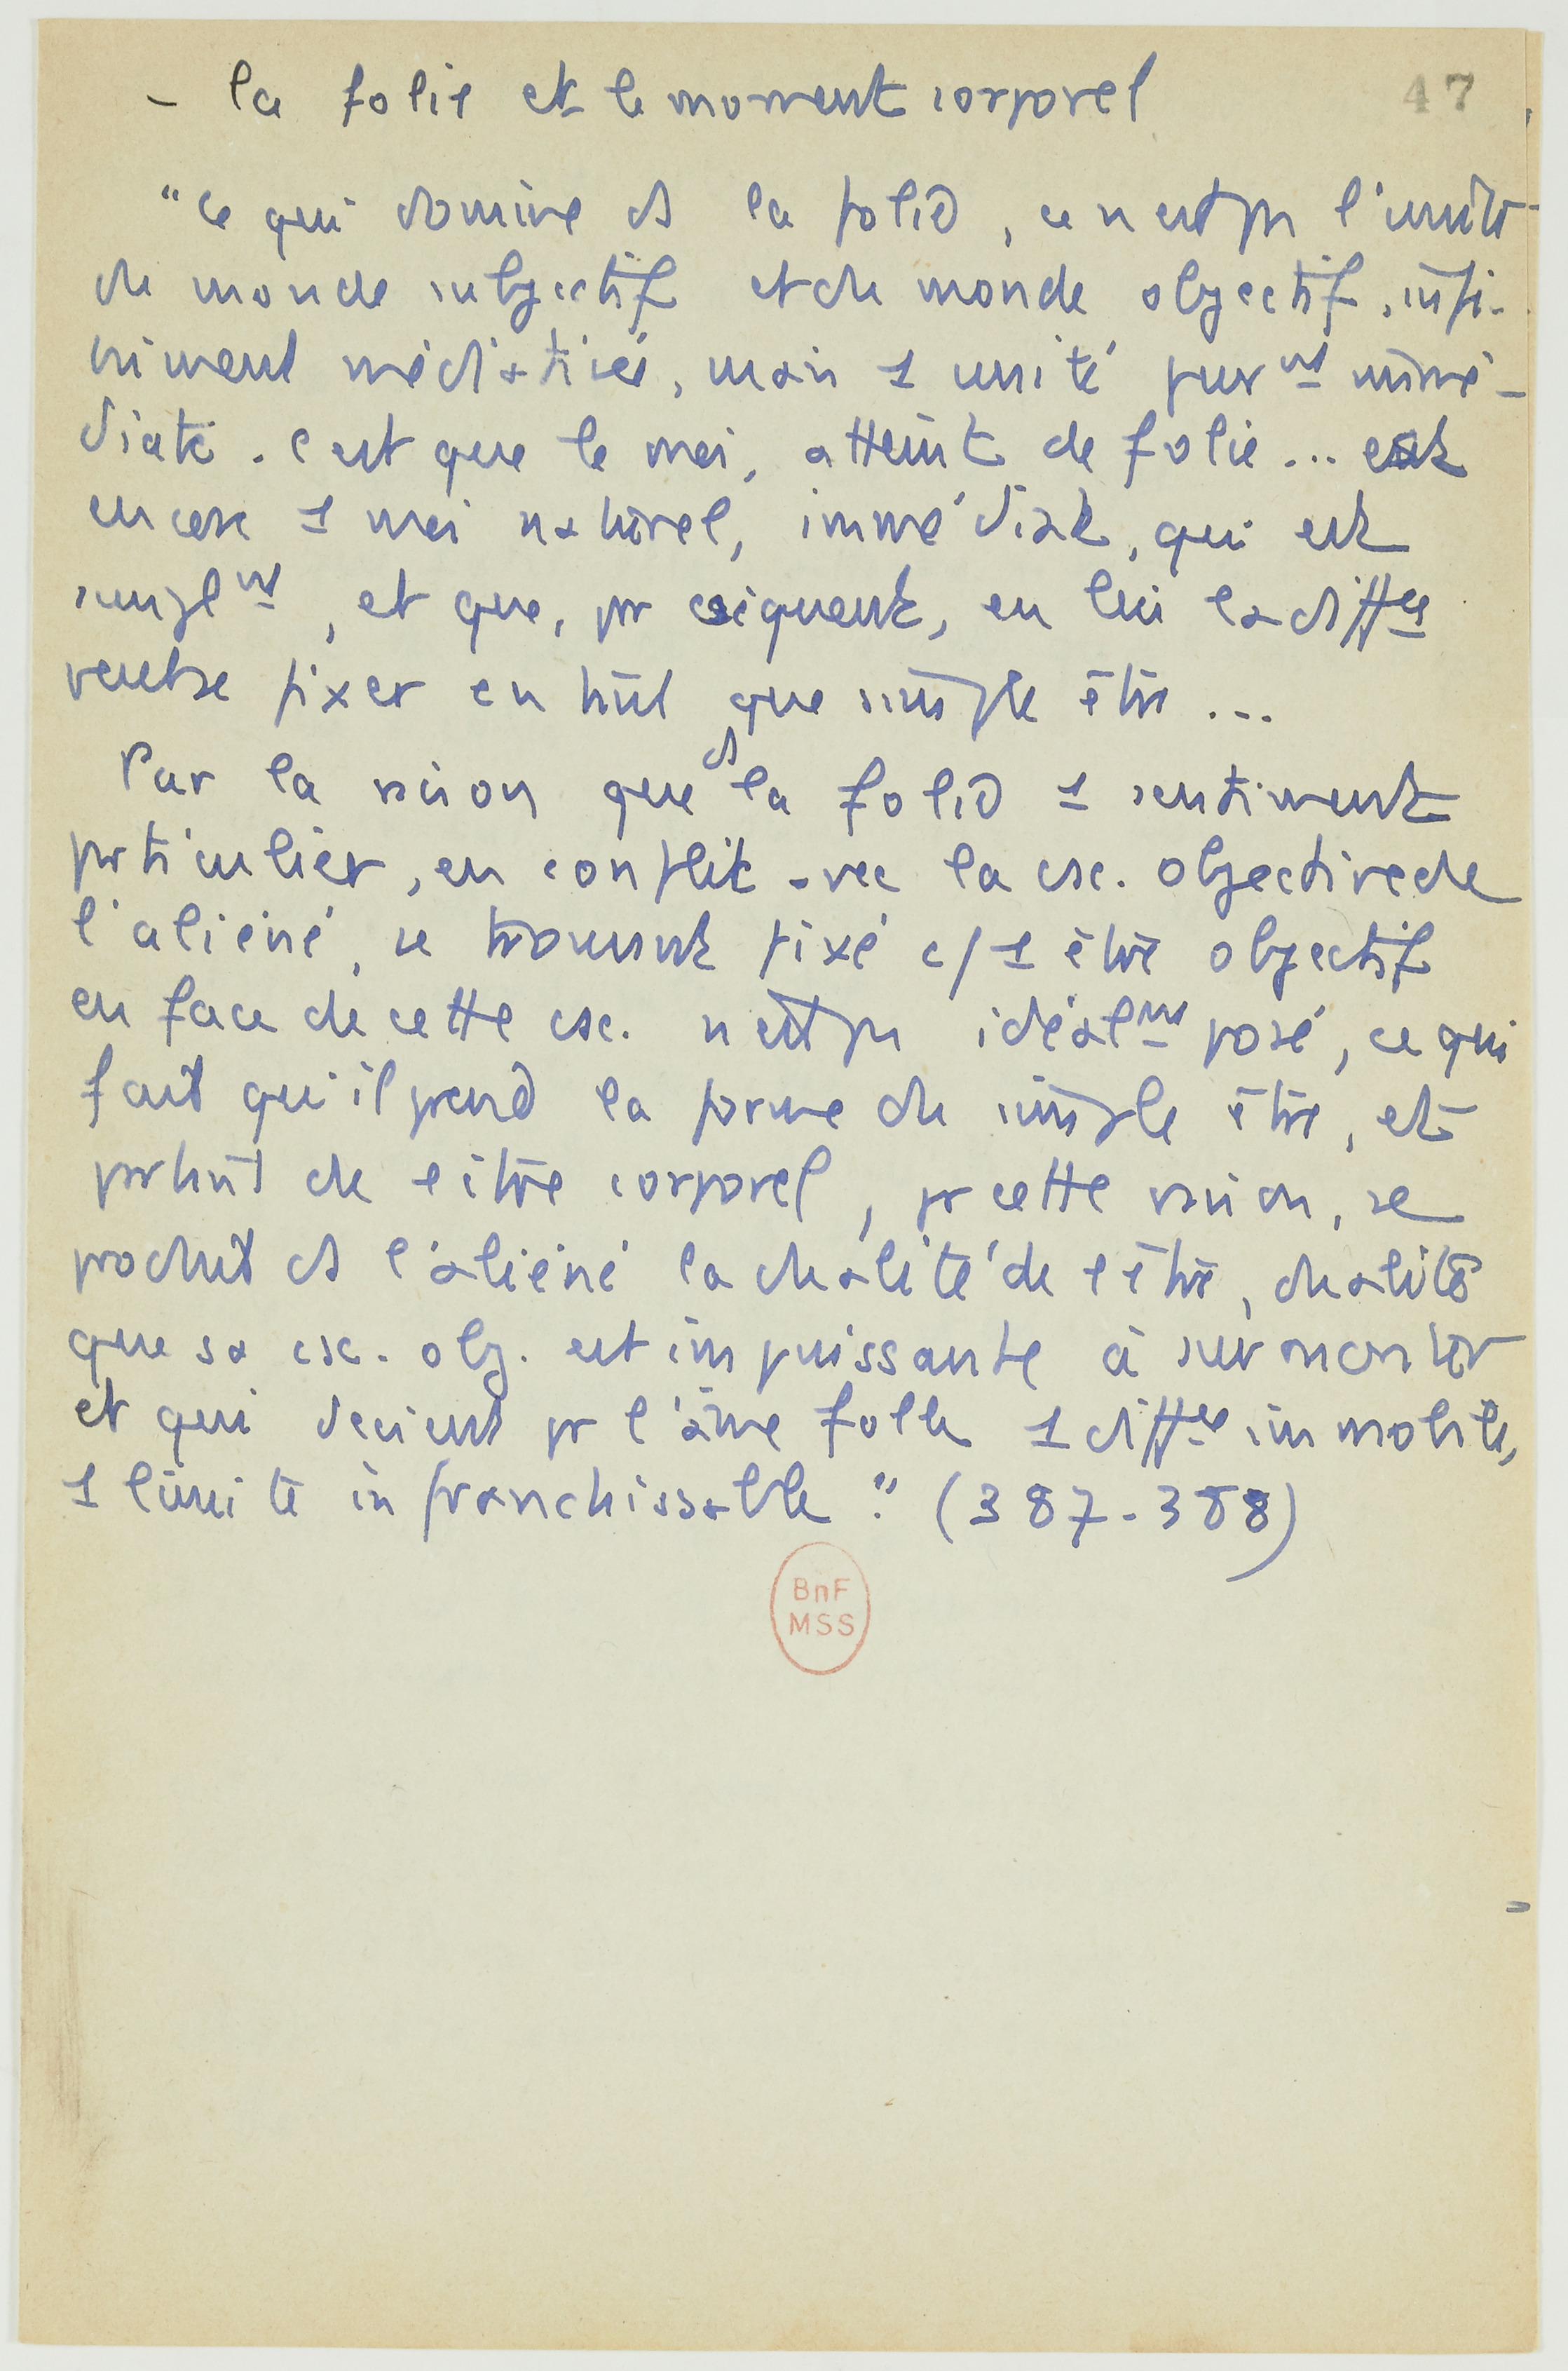 - la folie et le moment corporel
47
"Ce qui domine ds la folie, ce n'est pas l'unité
du monde subjectif et du monde objectif, infi-
niment médiatisée, mais 1 unité purmt immé-
diate. C'est que le moi, atteint de folie... est
encore 1 moi naturel, immédiat, qui est
simplmt, et que, pr csiquent, en lui la diffce
peut se fixer en tant que simple être...
Par la raison que ds la folie 1 sentiment
particulier, en conflit avec la csc. objective de
l'aliéné, se trouvant fixé c/ 1 être objectif
en face de cette csc. n'est pas idéalmt posé, ce qui
fait qu'il prend la forme du simple être, et
partant de l'être corporel, pr cette raison, se
produit ds l'aliéné la dualité de l'être, dualité
que sa csc. obj. est impuissante à surmonter
et qui devient pr l'âme folle 1 diffce immobile,
1 limite infranchissable." (387-388)
BnF
MSS